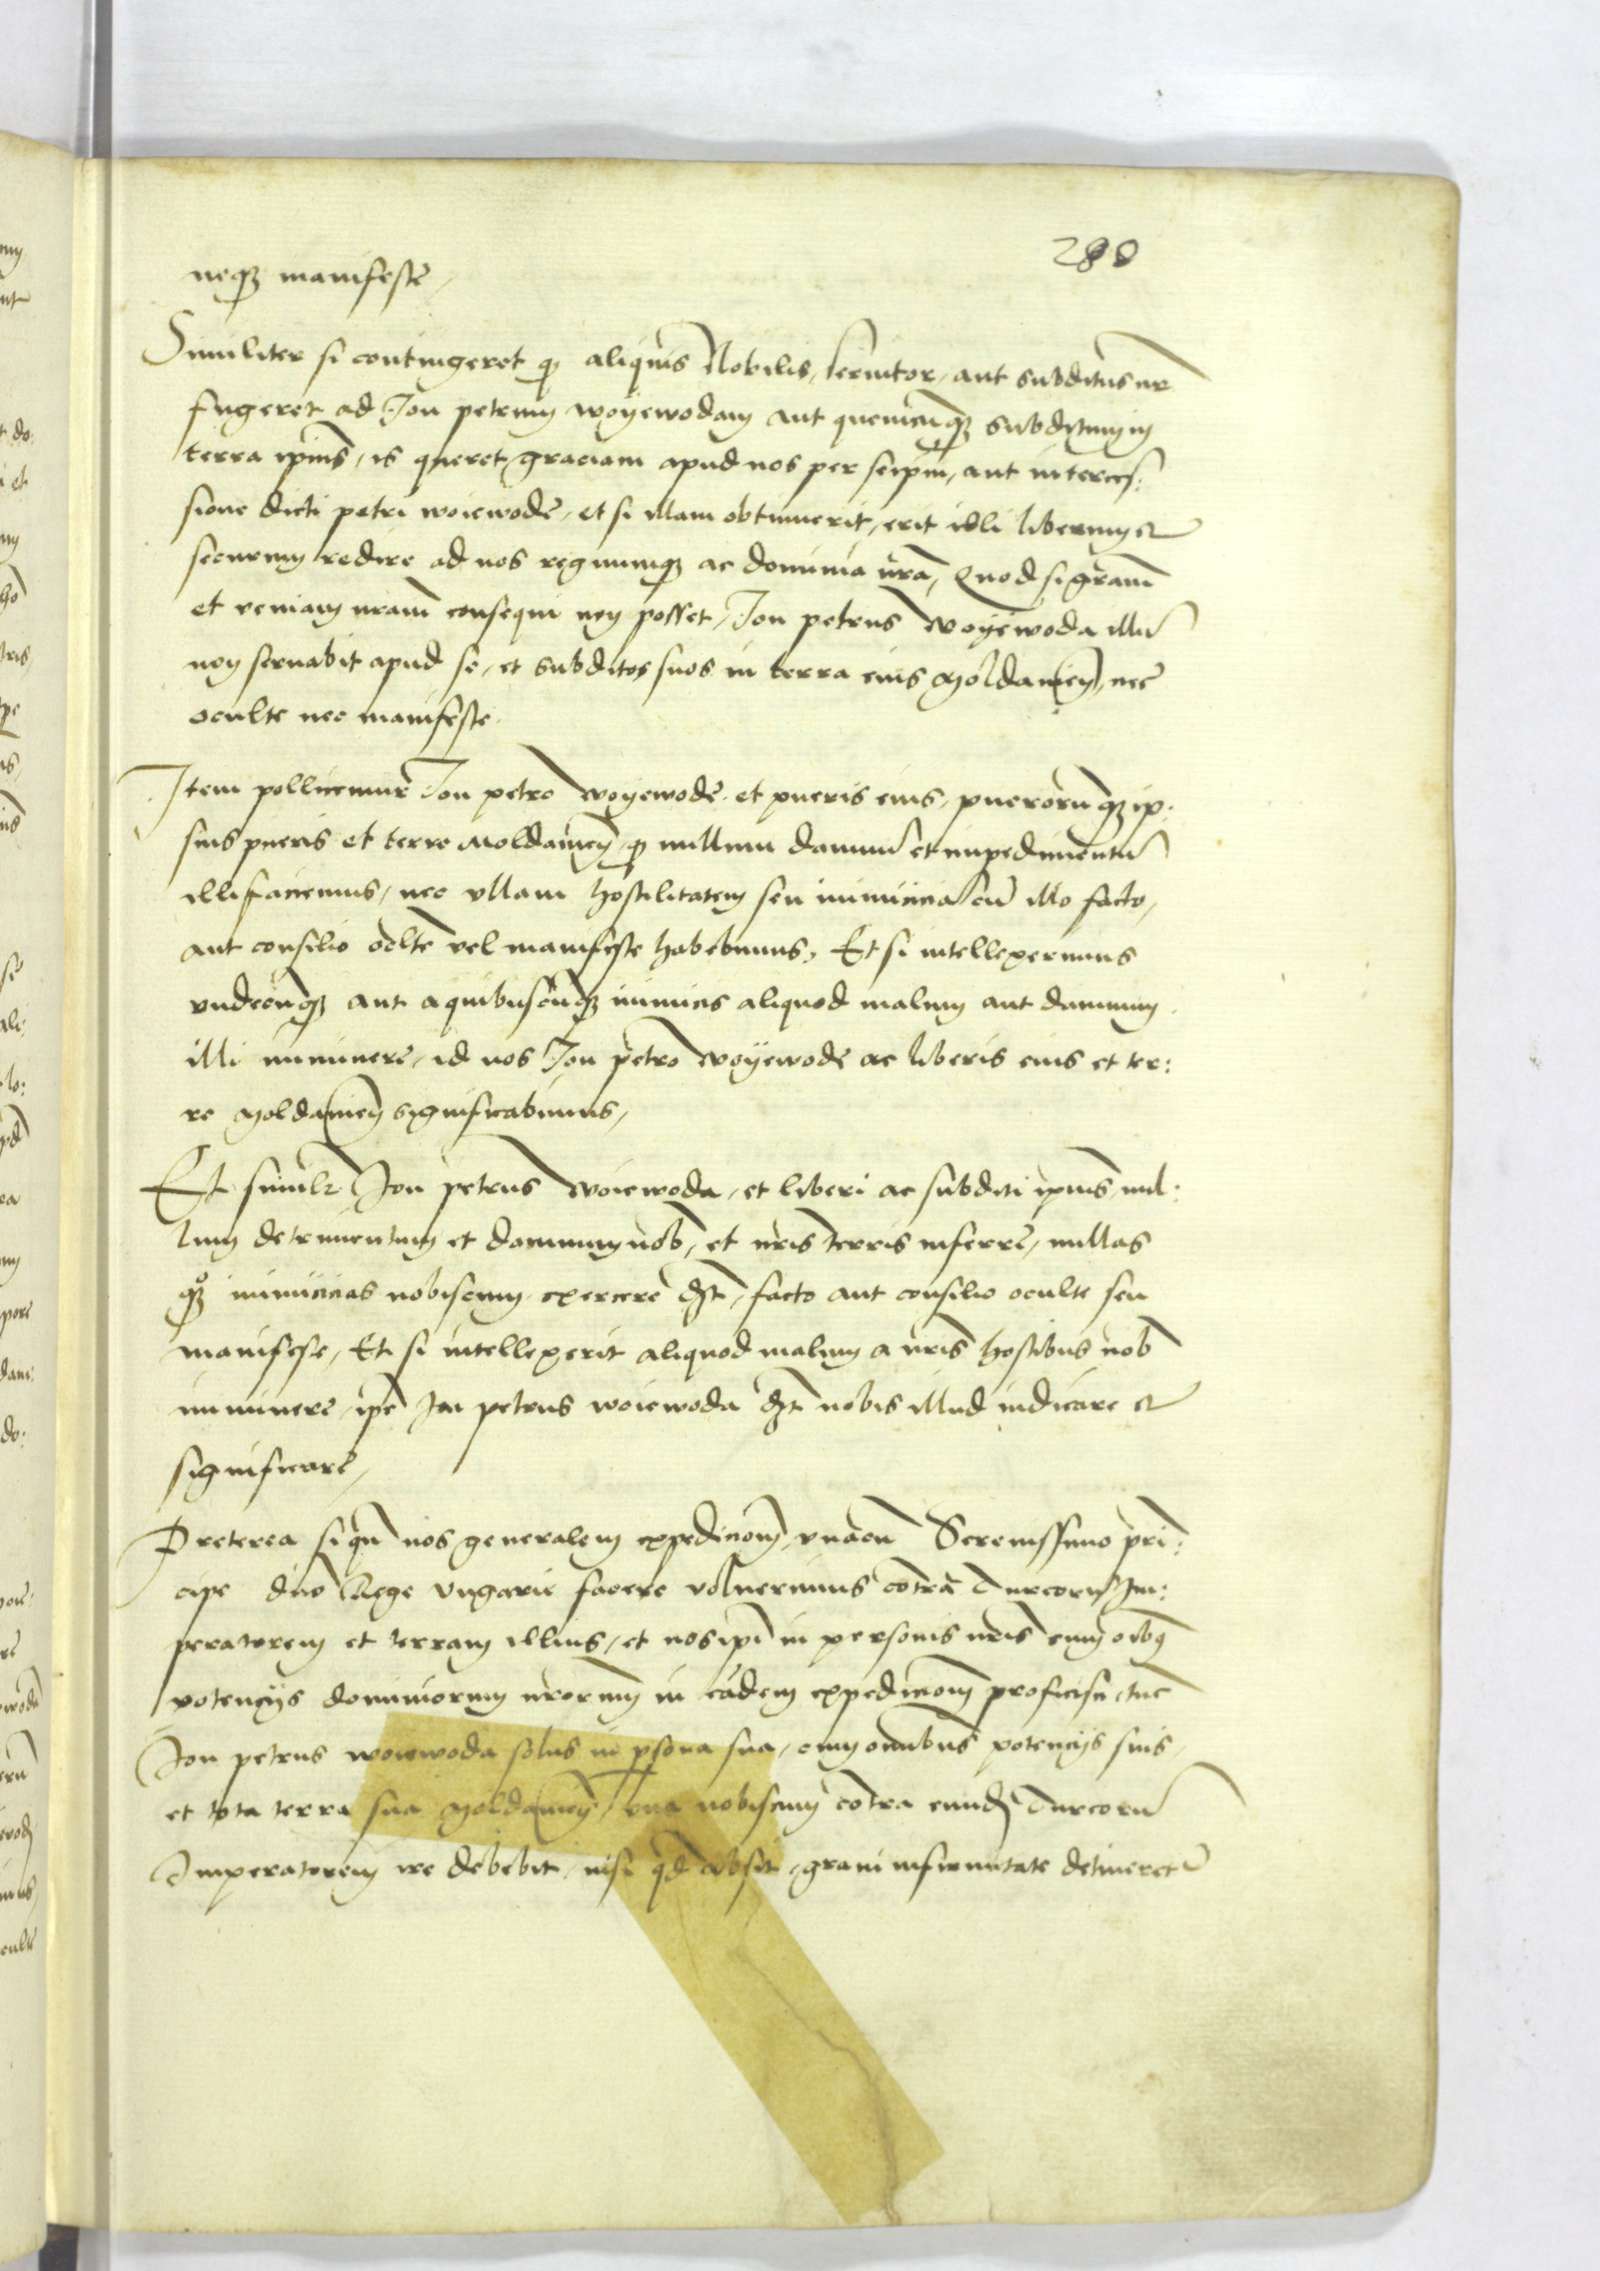 280
neq₃ manifeste,
Similiter si contingeret q̃ aliquis Nobilis, seruitor, aut subditus nr̃
fugeret ad Jon petrum woyewodam aut quemcunq₃ subditum in
terra ipius̃, is queret graciam apud nos per seipm̃, aut interces:
sione dicti petri woiewode, et si illam obtinuerit, erit illi liberum et
securum redire ad nos regnumq₃ ac dominia nrã, Quod si gram̃
et veniam nram̃ consequi non posset, Jon petrus woyewoda illũ
non seruabit apud se, et subditos suos in terra eius Moldauien̄, nec
oculte nec manifeste.
Item pollicemur Jon petro woyewode, et pueris eius, puerorũq₃ ip:
sius pueris et terre Moldauien̄, q̃ nullum damnũ et impedimentũ
illi faciemus, nec vllam hostilitatem seu inimiciciã cũ illo facto,
aut consilio oclte vel manifeste habebimus, Et si intellexerimus
vndecunq₃ aut a quibuscunq₃ inimicis aliquod malum aut damnum
illi imminere, id nos Jon petro woyewode ac liberis eius et ter:
re Moldauien̄ significabimus,
Et similr̃ Jon petrus woiewoda, et liberi ac subditi ipius̃, nul:
lum detrimentum et damnum nob̃, et nris̃ terris inferre, nullas
q₃ inimicicias nobiscum exercere d₃t, facto aut consilio oculte seu
manifeste, Et si intellexerit aliquod malum a nris̃ hostibus nob̃
imminere, ip̃e Jon petrus woiewoda d₃t nobis illud indicare et
significare,
Preterea si qñ nos generalem expedicionem̃ vnacũ Serenissimo prin:
cipe dño Rege Vngarie facere voluerimus contrã Turcorũ Im:
peratorem et terram illius, et nos ipi̇̃ in personis nris̃ cum oĩbq₃
potencijs dominiorum nrorum̃ in eadem expedicionem̃ proficisci, tũc
Jon petrus woiewoda solus in psona sua, cum omnibus potencijs suis,
et tota terra sua Moldauien̄, vna nobiscum contra eund̃ Turcorũ
Imperatorem ire debebit, nisi qd̃ absit, graui infirmitate detineretr̃